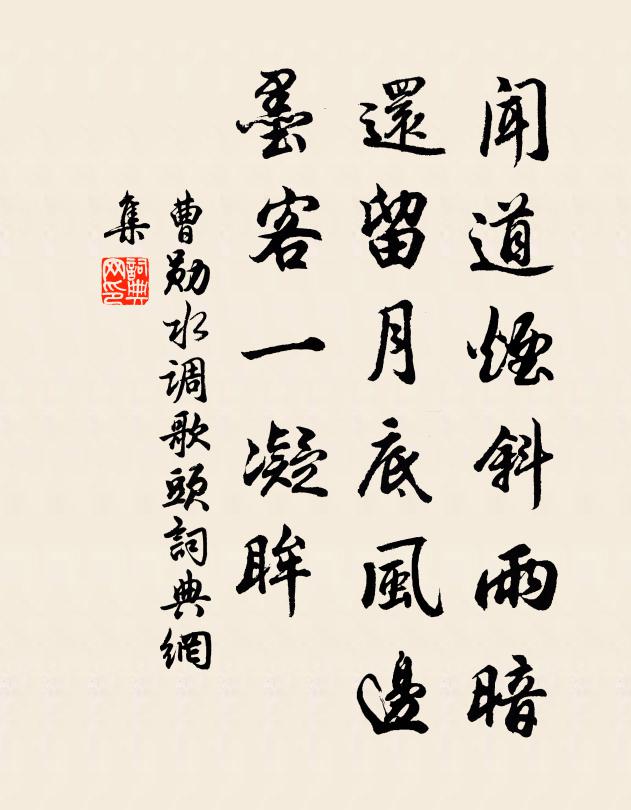 聞道煙斜雨暗
還留月底風邊
墨客一凝眸
曹勛水调歌頭詞典網
集
詞典
网印